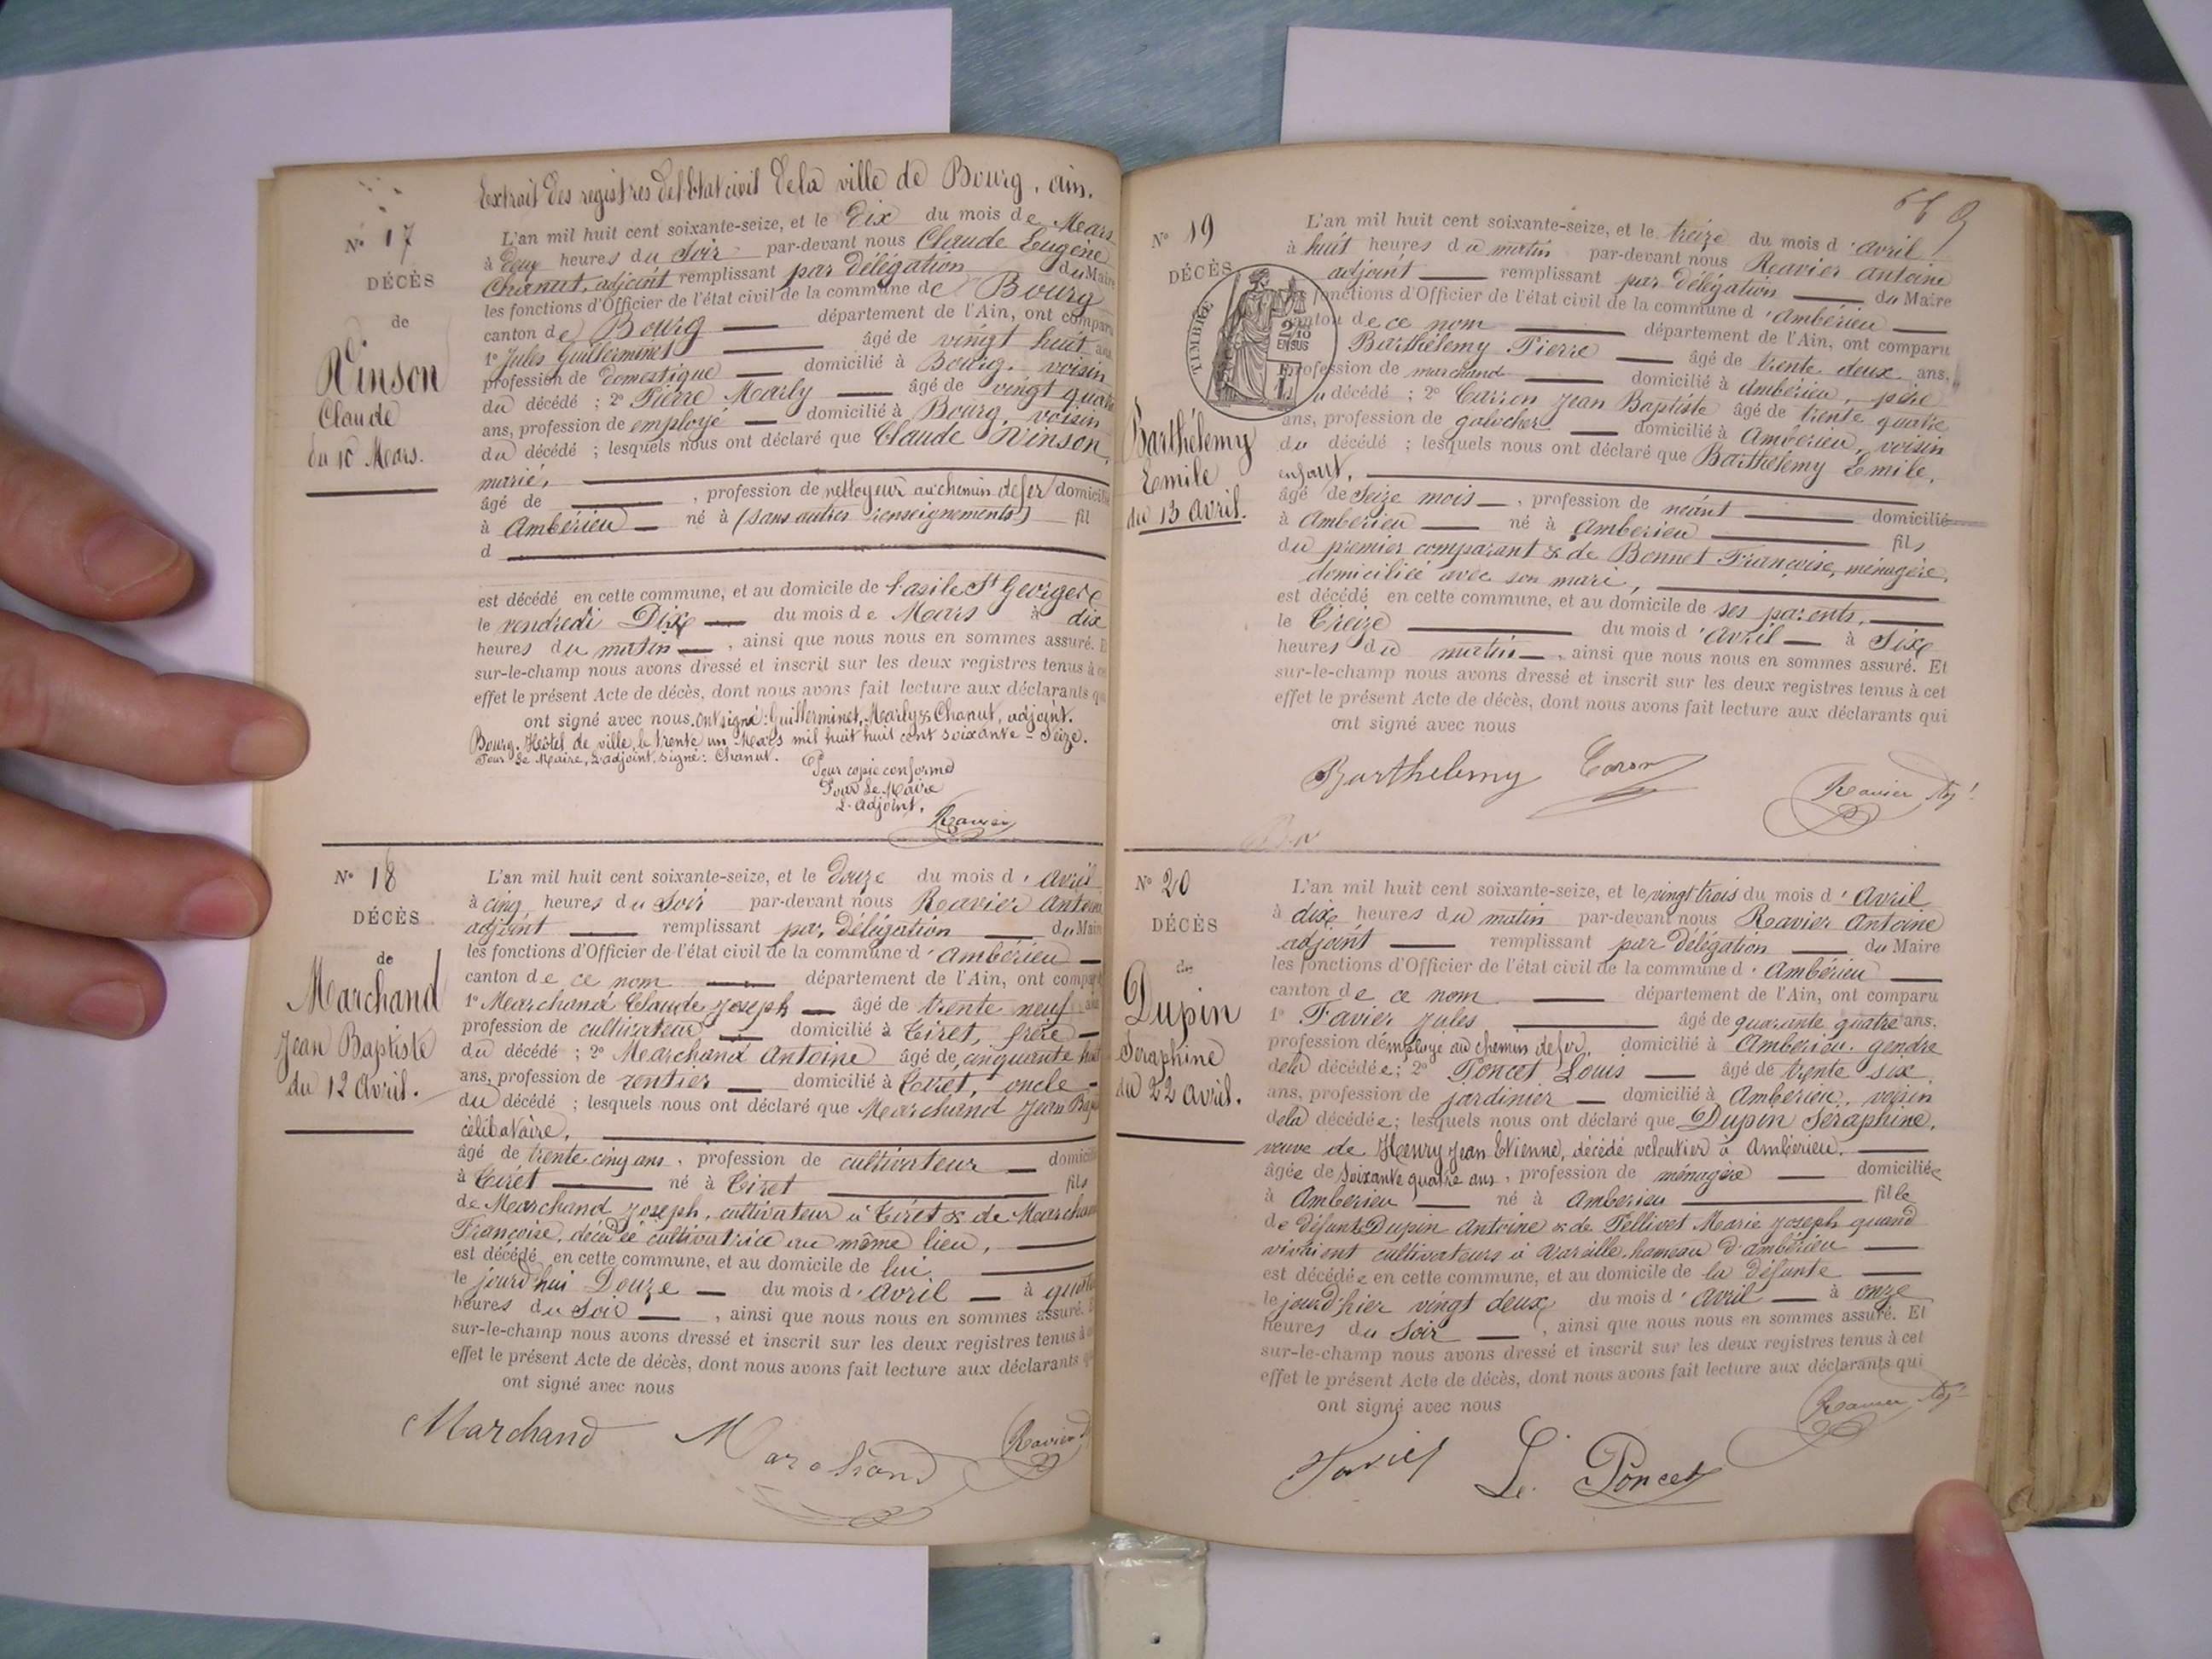 Extrait des registres de l'Etat civil de la ville de Bourg, ain.
N° 17
DÉCÈS
de
Vinson
Claude
du 10 Mars.
L'an mil huit cent soixante-seize, et le Dix du mois de Mars
à deux heures du Soir par-devant nous Claude Eugène
Chanut, adjoint remplissant par délégation du Maire
les fonctions d'Officier de l'état civil de la commune de Bourg
canton de Bourg département de l'Ain, ont comparu
1° Jules Guillerminet âgé de vingt huit ans
profession de domestique domicilié à Bourg, voisin
du décédé ; 2° Pierre Marly âgé de vingt quatre
ans, profession de employé domicilié à Bourg, voisin
du décédé ; lesquels nous ont déclaré que Claude Vinson,
marié,
âgé de , profession de nettoyeur au chemin de fer domicilié
à Ambérieu né à (sans autres renseignements) fil
d
est décédé en cette commune, et au domicile de l'asile St Georges
le vendredi Dix du mois de Mars à dix
heures du matin , ainsi que nous nous en sommes assuré. E
sur-le-champ nous avons dressé et inscrit sur les deux registres tenus à ce
effet le présent Acte de décès, dont nous avons fait lecture aux déclarants qu
ont signé avec nous. Ont signé : Guillerminet, Marly & Chanut, adjoint.
Bourg, Hôtel de ville, le trente un Mars mil huit huit cent soixante-Seize.
Pour Le Maire, L'adjoint, signé : Chanut.
Pour copie conforme
Pour Le Maire
L'adjoint,
Ravier
N° 18
DÉCÈS
de
Marchand
Jean Baptiste
du 12 Avril.
L'an mil huit cent soixante-seize, et le Douze du mois d'Avril
à cinq heures du Soir par-devant nous Ravier Antoin
adjoint remplissant par délégation du Mair
les fonctions d'Officier de l'état civil de la commune d'Ambérieu
canton de ce nom département de l'Ain, ont compar
1° Marchand Claude Joseph âgé de trente neuf ans
profession de cultivateur domicilié à Tiret, frère
du décédé ; 2° Marchand Antoine âgé de cinquante huit
ans, profession de rentier domicilié à Tiret, oncle
du décédé ; lesquels nous ont déclaré que Marchand Jean Bapt
célibataire,
âgé de trente cinq ans, profession de cultivateur domicili
à Tiret né à Tiret fils
de Marchand Joseph, cultivateur à Tiret & de Marchan
Françoise, décédée cultivatrice au même lieu,
est décédé en cette commune, et au domicile de lui
le jourd'hui Douze du mois d'Avril à quatre
heures du Soir , ainsi que nous nous en sommes assuré. E
sur-le-champ nous avons dressé et inscrit sur les deux registres tenus à ce
effet le présent Acte de décès, dont nous avons fait lecture aux déclarants qu
ont signé avec nous
Marchand Marchand Ravier
569
N° 19
DÉCÈS
TIMBRE
2/10
EN SUS
Barthélemy
Emile
du 13 Avril.
L'an mil huit cent soixante-seize, et le treize du mois d'avril
à huit heures du matin par-devant nous Ravier Antoine
adjoint remplissant par délégation du Maire
les fonctions d'Officier de l'état civil de la commune d'Ambérieu
canton de ce nom département de l'Ain, ont comparu
Barthélemy Pierre âgé de trente deux ans,
profession de marchand domicilié à Ambérieu, père
du décédé ; 2° Carron Jean Baptiste âgé de trente quatre
ans, profession de galocher domicilié à Ambérieu, voisin
du décédé ; lesquels nous ont déclaré que Barthélemy Emile,
enfant,
âgé de Seize mois , profession de néant domicilié
à Ambérieu né à Ambérieu fils
du premier comparant & de Bonnet Françoise, ménagère,
domiciliée avec son mari,
est décédé en cette commune, et au domicile de ses parents,
le Treize du mois d'Avril à Six
heures du matin , ainsi que nous nous en sommes assuré. Et
sur-le-champ nous avons dressé et inscrit sur les deux registres tenus à cet
effet le présent Acte de décès, dont nous avons fait lecture aux déclarants qui
ont signé avec nous
Barthelemy Caron Ravier Adjt
N° 20
DÉCÈS
de
Dupin
Séraphine
du 22 Avril.
L'an mil huit cent soixante-seize, et le vingt trois du mois d'Avril
à dix heures du matin par-devant nous Ravier Antoine
adjoint remplissant par délégation du Maire
les fonctions d'Officier de l'état civil de la commune d'Ambérieu
canton de ce nom département de l'Ain, ont comparu
1° Favier Jules âgé de quarante quatre ans,
profession d'employé au chemin de fer, domicilié à Ambérieu, gendre
de la décédée ; 2° Poncet Louis âgé de trente six
ans, profession de jardinier domicilié à Ambérieu, voisin
de la décédée ; lesquels nous ont déclaré que Dupin Séraphine,
veuve de Henry Jean Etienne, décédé veloutier à Ambérieu.
âgée de Soixante quatre ans, profession de ménagère domiciliée
à Ambérieu né à Ambérieu fille
de défunts Dupin Antoine & de Pellivet Marie Joseph quand
vivaient cultivateurs à Vareille, hameau d'Ambérieu
est décédée en cette commune, et au domicile de la défunte
le jourd'hier vingt deux du mois d'Avril à onze
heures du Soir , ainsi que nous nous en sommes assuré. Et
sur-le-champ nous avons dressé et inscrit sur les deux registres tenus à cet
effet le présent Acte de décès, dont nous avons fait lecture aux déclarants qui
ont signé avec nous
Favier L. Poncet Ravier Adjt